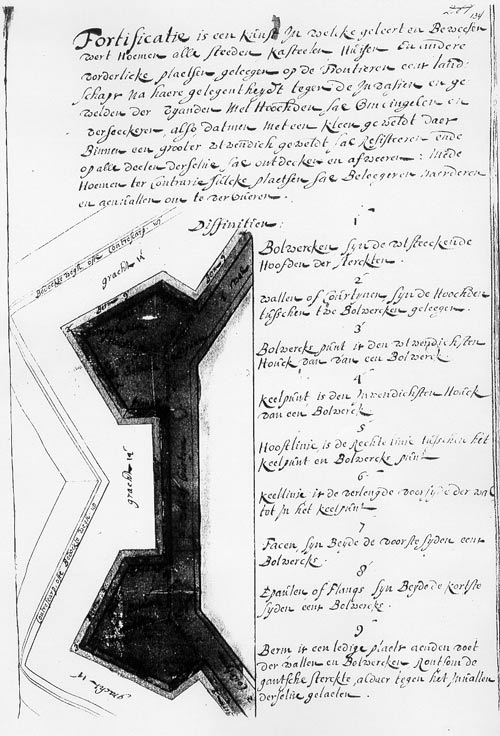 134
Fortificatie is een kunst In welcke geleert en Beweesen
wert Hoemen alle steeden kasteelen Huijsen En andere
vorderlicke plaetsen geleegen op de Frontieren eenr land-
schapr Na haere gelegentheydt tegen de Invasien en ge-
welden der vyanden Met Hoochden sae Omcingelen en
verseeckeren, alsodatmen Met een kleen geweldt daer
Binnen een grooter wtwendich geweldt sae Resisteeren Ende
op alle deelen derselve sae ontdecken en afweeren: Mede
Hoemen ter Contrarie sulcke plaetsen sae Beleegeren naerderen
en aenvallen om te veroveren.
Diffinitien:
1
Bolwercken syn de wtsteeckende
Hoofden der sterckten.
2
wallen of Courtynen syn de Hoochden
tusschen twe Bolwercken geleegen.
3
Bolwercks punt is den wtwendichsten
Houck van van een Bolwerck.
4
keelpunt is den Inwendichsten Houck
van een Bolwerck
5
Hooftlinie is de Rechte linie tusschen het
keelpunt en Bolwercks punt
6
keellinie is de verlengde voorsyde der wal
tot In het keelpunt
7
Facen syn Beyde de voorste syden eenr
Bolwercks.
8
Epaulen of Flangs syn Beyde de kortste
syden eenr Bolwercks.
9
Berm is een ledige plaets aenden voet
der wallen en Bolwercken Rontsom de
gantsche sterckte, alduer tegen het Invallen
derselve gelaeten.
gracht
Berm 9
Berm 9
1 wal
gracht
gracht